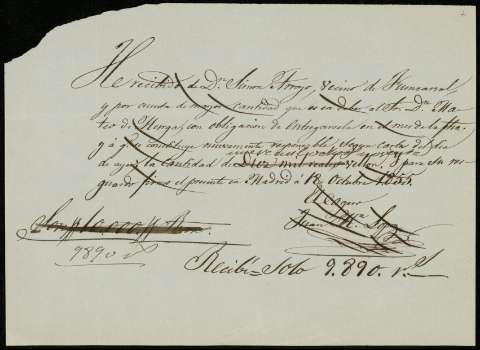 He recibido de Dn. Simon Arroyo, vecino de Fuencarral,
y por cuenta de mayor cantidad que es en deber al Sr. Dn. Ma-
teo de Monga, con obligacion de entregarsela en el mes de la fha
y á qe. constituye nuevamente responsable segun carta del dia
de ayer, la Cantidad de Diez mil reales vellon. Y para su res-
guardo firmo el presente en Madrid á 18 Octubre 1855.
Son 10.000
9890
Recibí Solo 9.890. rs.